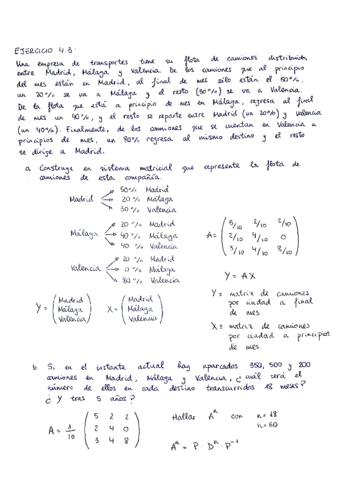 EJERCICIO 4.3:
Una empresa de transportes tiene su flota de camiones distribuida
entre Madrid, Málaga y Valencia. De los camiones que al principio
del mes están en Madrid, al final de mes sólo están el 50%,
un 20% se va a Málaga y el resto (30%) se va a Valencia.
De la flota que está a principio de mes en Málaga, regresa al final
de mes un 40%, y el resto se reparte entre Madrid (un 20%) y Valencia
(un 40%). Finalmente, de los camiones que se cuentan en Valencia a
principios de mes, un 80% regresa al mismo destino y el resto
se dirige a Madrid.
a Construye en sistema matricial que represente la flota de
camiones de esta compañía.
Madrid → 50% Madrid
→ 20% Málaga
→ 30% Valencia
Málaga → 20% Madrid
→ 40% Málaga
→ 40% Valencia
Valencia → 20% Madrid
→ 0% Málaga
→ 80% Valencia
A = ( 5/10 2/10 2/10
2/10 4/10 0
3/10 4/10 8/10 )
Y = AX
Y = ( Madrid
Málaga
Valencia )
X = ( Madrid
Málaga
Valencia )
Y = matriz de camiones
por ciudad a final
de mes
X = matriz de camiones
por ciudad a principios
de mes.
b Si en el instante actual hay aparcados 350, 500 y 200
camiones en Madrid, Málaga y Valencia, ¿cuál será el
número de ellos en cada destino transcurridos 18 meses?
¿Y tras 5 años?
A = 1/10 ( 5 2 2
2 4 0
3 4 8 )
Hallar Aⁿ con n = 18
n = 60
Aⁿ = P · Dⁿ · P⁻¹